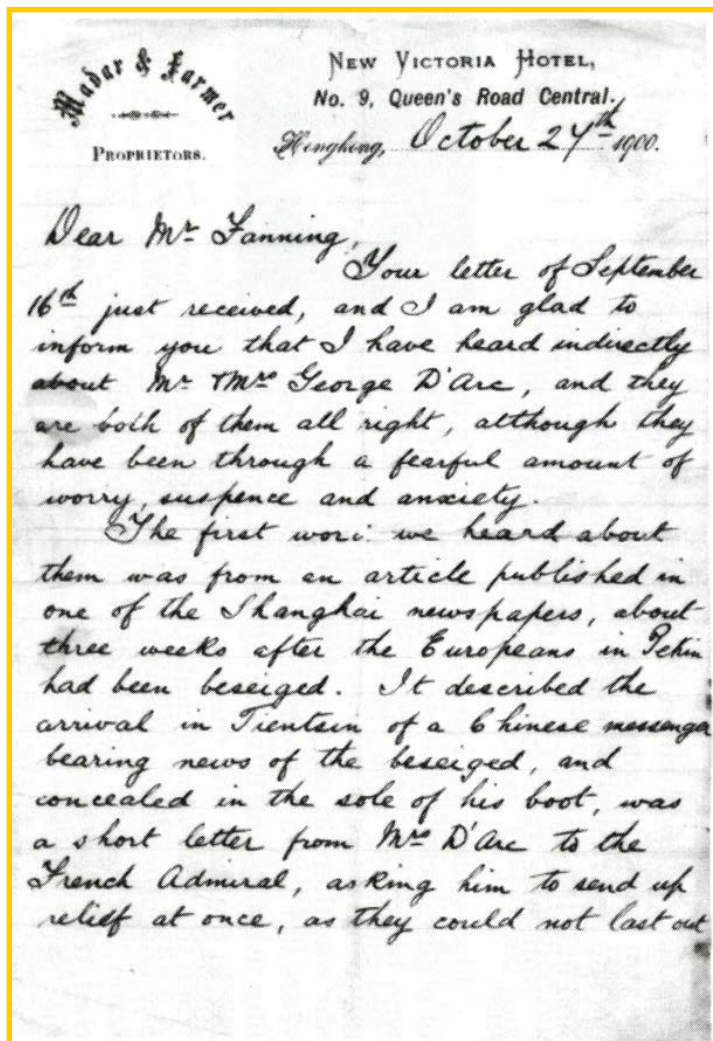 Madar & Farmer
PROPRIETORS.
NEW VICTORIA HOTEL,
No. 9, Queen's Road Central.
Hongkong, October 27th 1900.
Dear Mr Fanning,
Your letter of September
16th just received, and I am glad to
inform you that I have heard indirectly
about Mr & Mrs George D'Arc, and they
are both of them all right, although they
have been through a fearful amount of
worry, suspence and anxiety.
The first word we heard about
them was from an article published in
one of the Shanghai newspapers, about
three weeks after the Europeans in Pekin
had been beseiged. It described the
arrival in Tientsin of a Chinese messenger
bearing news of the beseiged, and
concealed in the sole of his boot, was
a short letter from Mrs D'Arc to the
French Admiral, asking him to send up
relief at once, as they could not last out